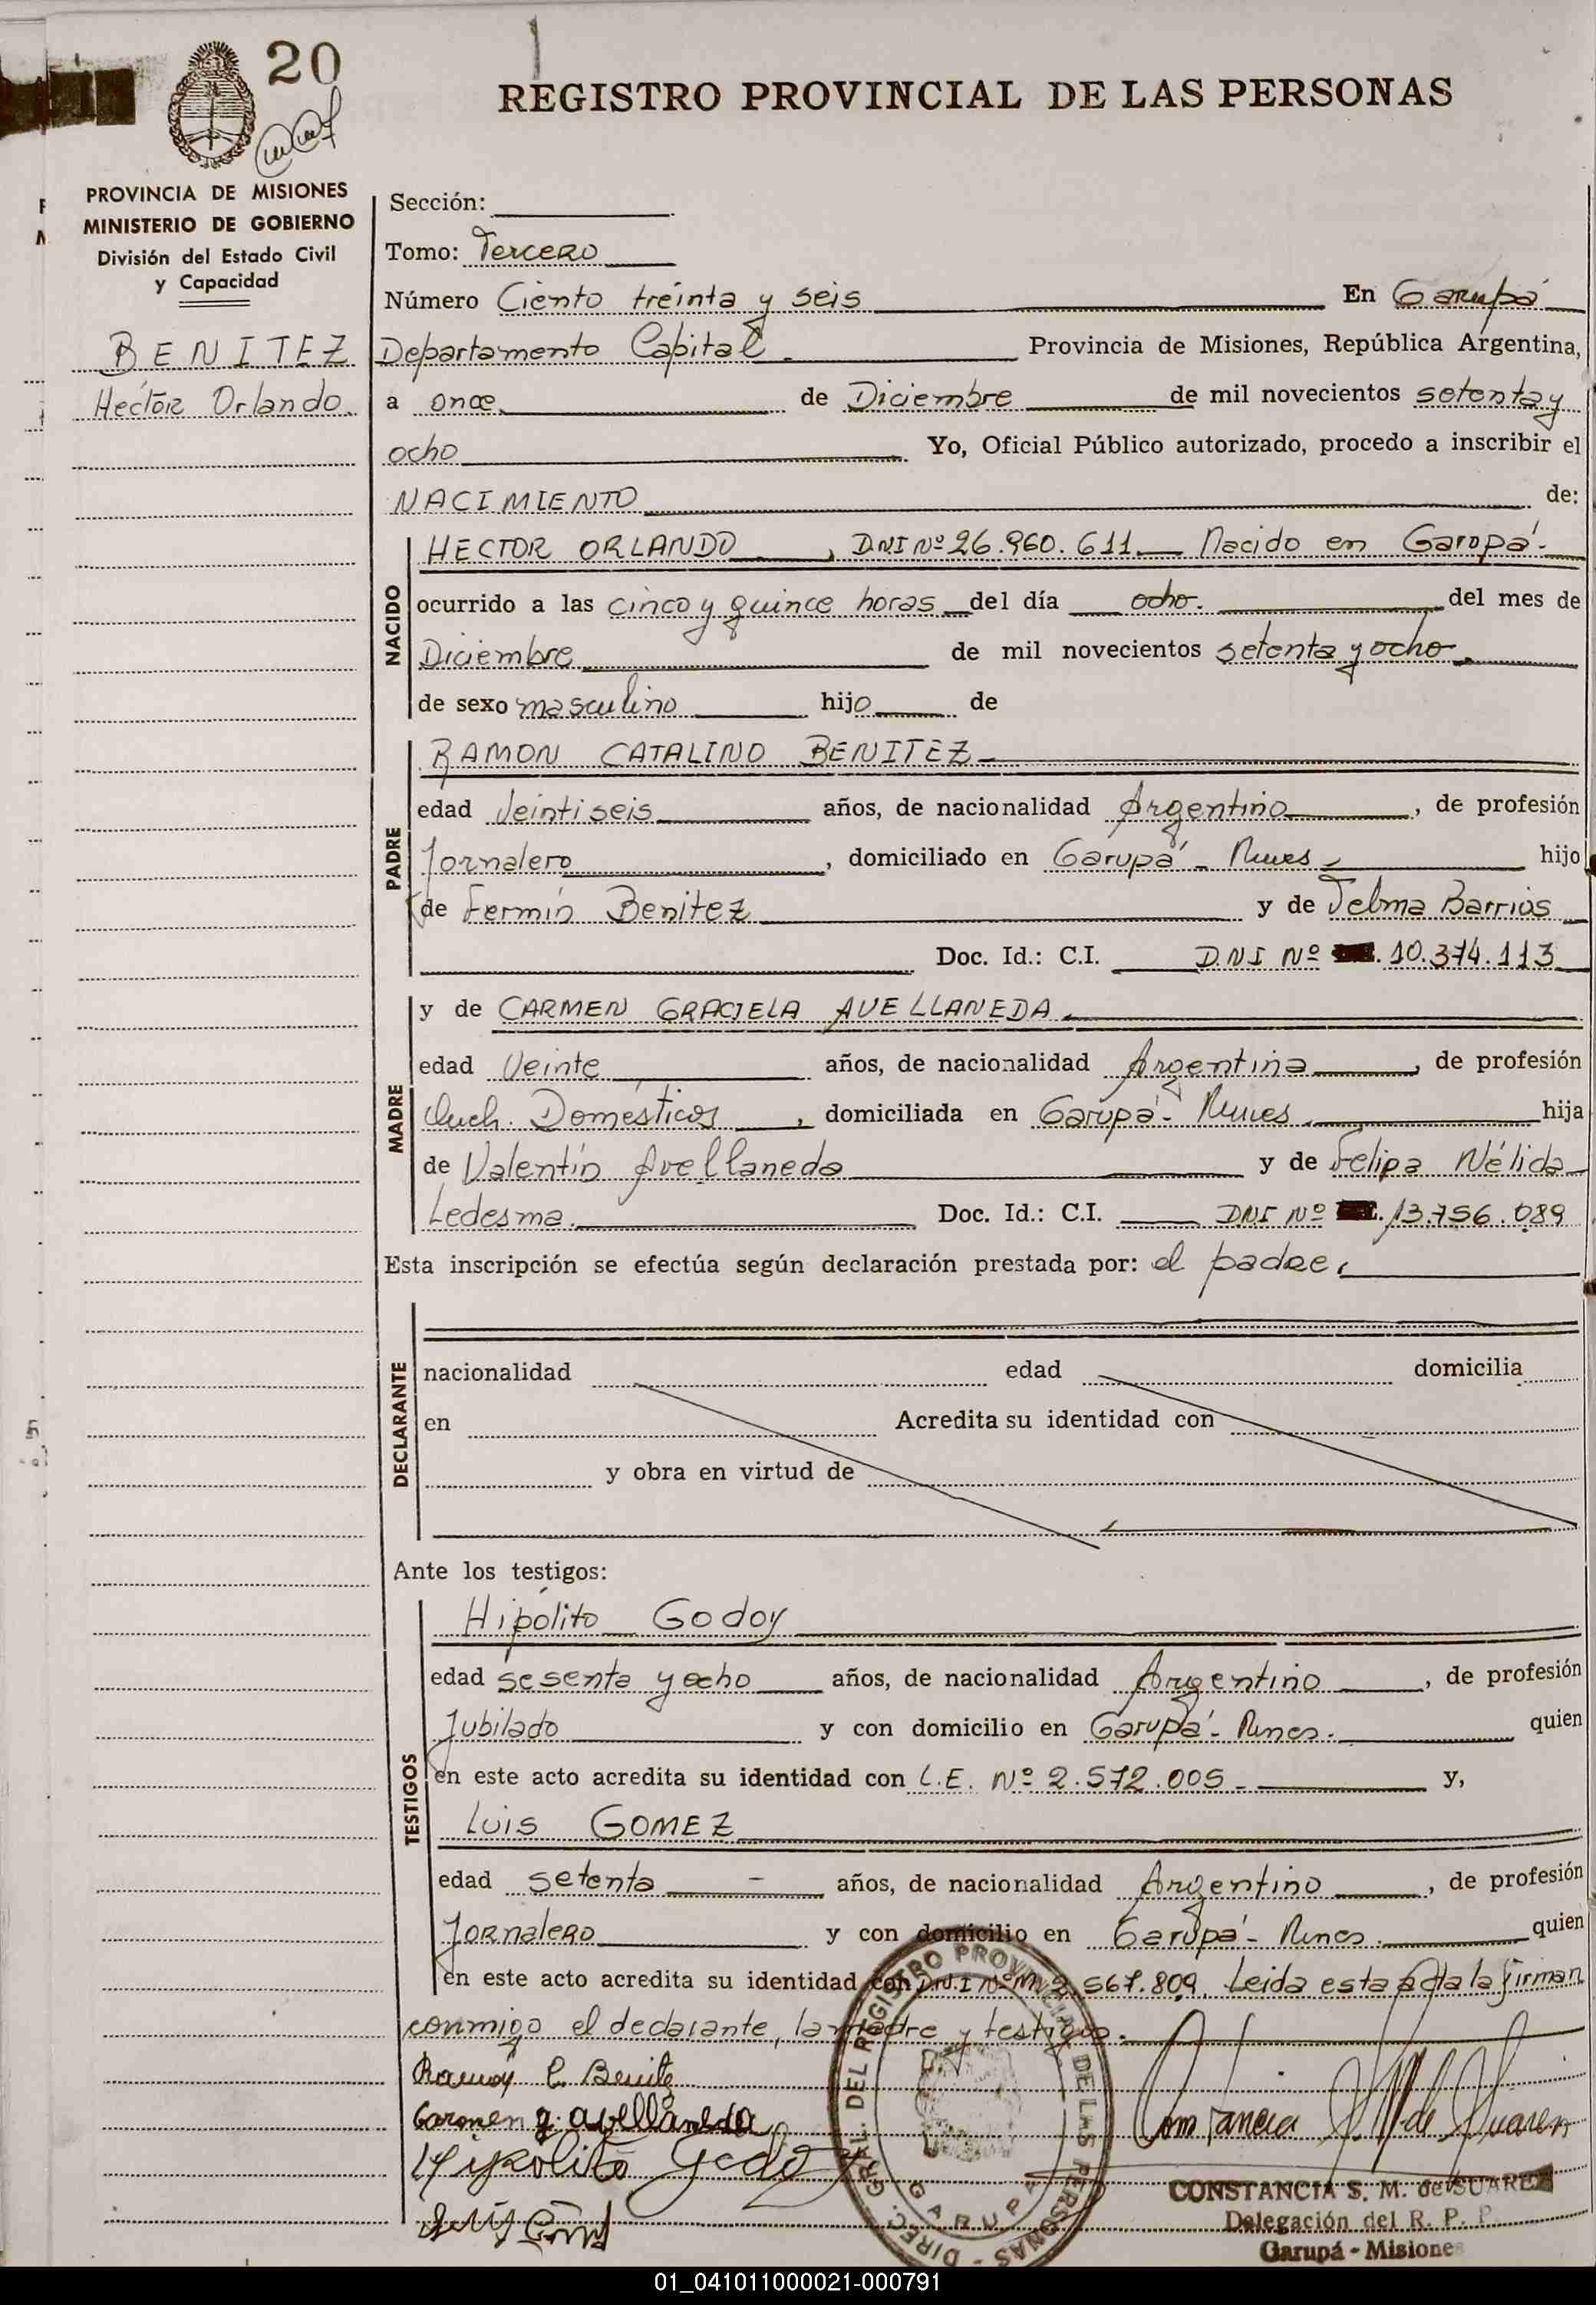 20
REGISTRO PROVINCIAL DE LAS PERSONAS
PROVINCIA DE MISIONES
MINISTERIO DE GOBIERNO
División del Estado Civil
y Capacidad
BENITEZ
Hectór Orlando.
Sección:
Tomo: Tercero
Número Ciento treinta y seis En Garupá
Departamento Capital. Provincia de Misiones, República Argentina,
a once de Diciembre de mil novecientos setenta y
ocho Yo, Oficial Público autorizado, procedo a inscribir el
NACIMIENTO de:
NACIDO
HECTOR ORLANDO , DNI Nº 26.960.611. Nacido en Garupá.
ocurrido a las cinco y quince horas del día ocho. del mes de
Diciembre de mil novecientos setenta y ocho.
de sexo masculino hijo de
PADRE
RAMON CATALINO BENITEZ
edad Veintiseis años, de nacionalidad Argentino , de profesión
Jornalero , domiciliado en Garupá - hijo
de Fermín Benitez y de Telma Barrios
Doc. Id.: C.I. D.N.I Nº 10.374.113
MADRE
y de CARMEN GRACIELA AVELLANEDA.
edad Veinte años, de nacionalidad Argentina , de profesión
Domésticos , domiciliada en Garupá - hija
de Valentín Avellaneda y de Felipa Nélida
Ledesma. Doc. Id.: C.I. DNI Nº 13.756.089
Esta inscripción se efectúa según declaración prestada por: el padre.
DECLARANTE
nacionalidad edad domicilia
en Acredita su identidad con
y obra en virtud de
Ante los testigos:
TESTIGOS
Hipólito Godoy
edad sesenta y ocho años, de nacionalidad Argentino , de profesión
Jubilado y con domicilio en Garupá - quien
en este acto acredita su identidad con L.E. Nº 2.572.005 - y,
Luis GOMEZ
edad setenta - años, de nacionalidad Argentino , de profesión
Jornalero y con domicilio en Garupá - quien
en este acto acredita su identidad con D.N.I Nº M 2.567.809. Leida esta acta la firman
conmigo el declarante, la madre y testigos.
Ramón C. Benite
Carmen g. avellaneda
Hipolito Godoy
DIREC. GRAL. DEL REGISTRO PROVINCIAL DE LAS PERSONAS -
GARUPA
Constancia S. M. de Suarez
CONSTANCIA S. M. de SUAREZ
Delegación del R. P. P.
Garupá - Misiones
01_041011000021-000791